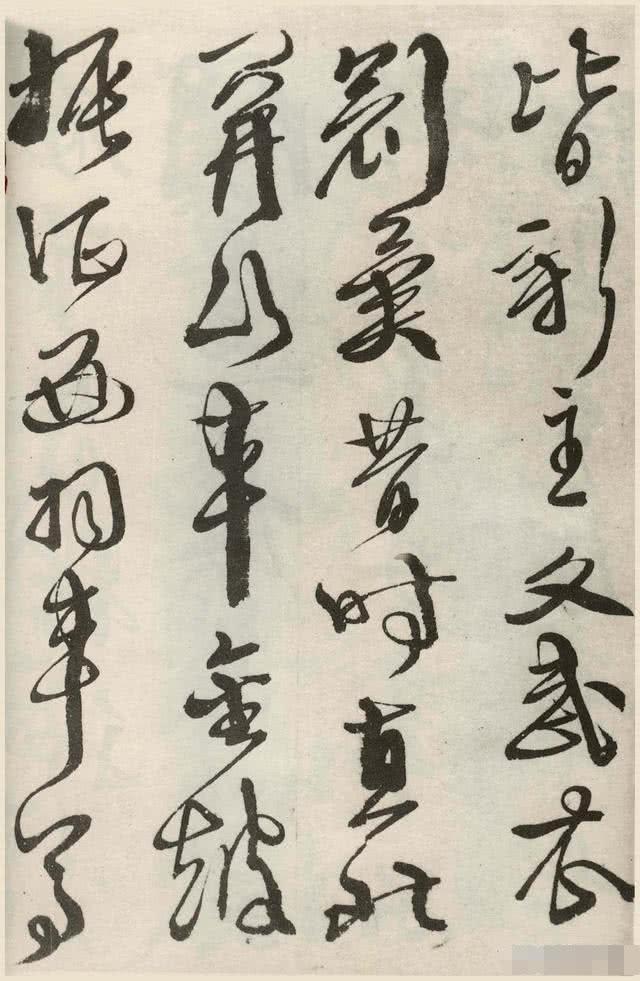 皆新主文武衣
冠異昔時直北
關山車金鼓
振征西羽車馬